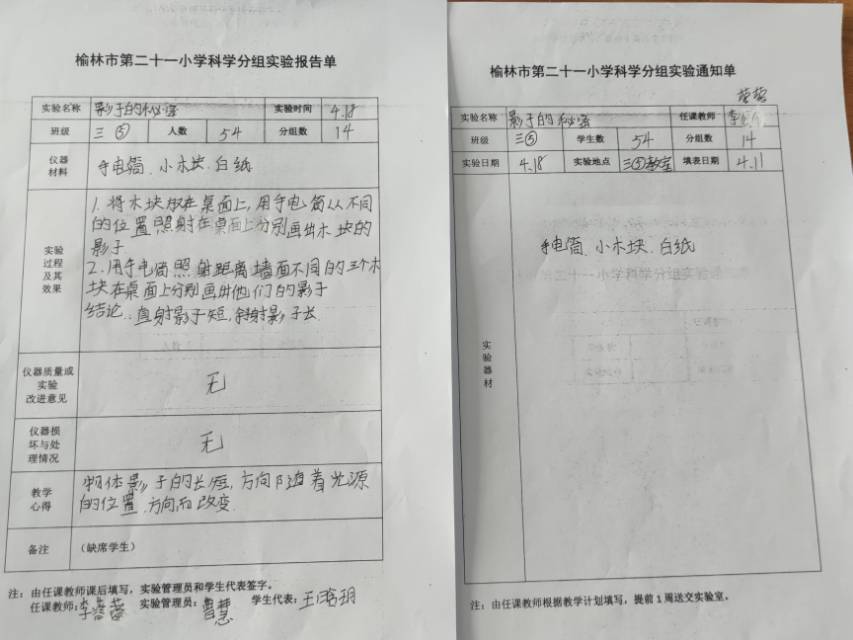 榆林市第二十一小学科学分组实验报告单
实验名称 影子的秘密 实验时间 4.18
班级 三⑤ 人数 54 分组数 14
仪器材料 手电筒、小木块、白纸
实验过程及其效果
1. 将木块放在桌面上,用手电筒从不同
的位置照射在桌面上分别画出木块的
影子
2. 用手电筒照射距离墙面不同的三个木
块在桌面上分别画出他们的影子
结论:直射影子短,斜射影子长
仪器质量或实验改进意见 无
仪器损坏与处理情况 无
教学心得
物体影子的长短,方向随着光源
的位置、方向而改变.
备注 (缺席学生)
注:由任课教师课后填写,实验管理员和学生代表签字。
任课教师: 李 实验管理员: 学生代表: 王
榆林市第二十一小学科学分组实验通知单
实验名称 影子的秘密 任课教师 李
班级 三⑤ 学生数 54 分组数 14
实验日期 4.18 实验地点 三⑤教室 填表日期 4.11
实验器材
手电筒、小木块、白纸
注:由任课教师根据教学计划填写,提前1周送交实验室。